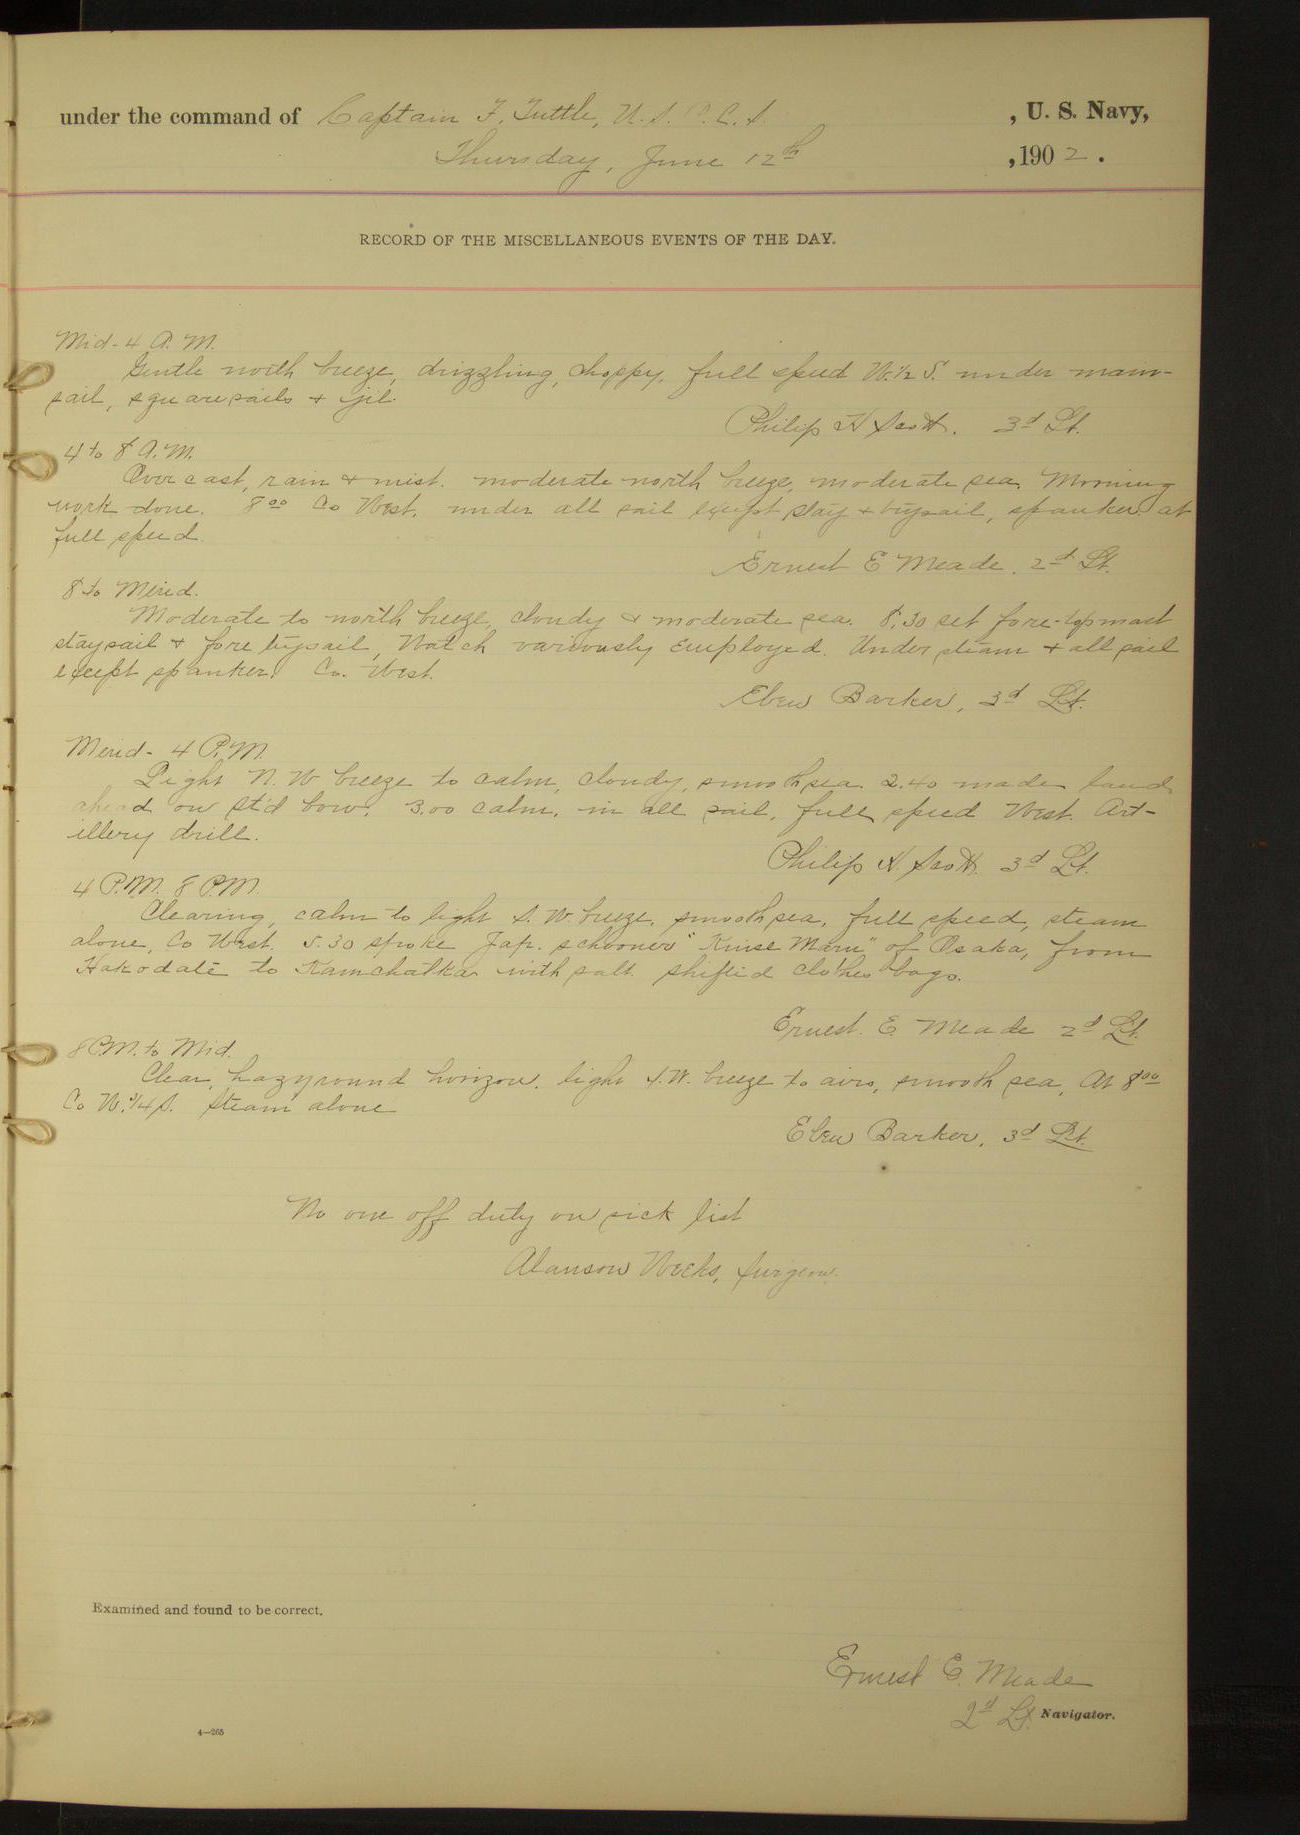 under the command of Captain F. Tuttle, U. S. R. C. S. , U. S. Navy,
Thursday, June 12th , 1902.
RECORD OF THE MISCELLANEOUS EVENTS OF THE DAY.
Mid - 4 A. M.
Gentle north breeze, drizzling, choppy, full speed W. 1/2 S. under main-
sail, squaresails & jib.
Philip H Scott. 3d Lt.
4 to 8 A. M.
Overcast, rain & mist. moderate north breeze, moderate sea. Morning
work done. 8 00 Co West. under all sail except stay & trysail, spanker. at
full speed.
Ernest E Meade. 2d Lt.
8 to Merid.
Moderate to north breeze, cloudy & moderate sea. 8.30 set fore-topmast
staysail & fore trysail, Watch variously employed. Under steam & all sail
except spanker. Co. West.
Eben Barker, 3d Lt.
Merid - 4 P. M.
Light N. W breeze to calm, cloudy, smooth sea. 2.40 made land
ahead on St'd bow. 3.00 calm, in all sail, full speed West. Art-
illery drill.
Philip H. Scott. 3d Lt.
4 P.M. 8 P.M.
Clearing, calm to light S. W. breeze, smooth sea, full speed, steam
alone, Co West. 5.30 spoke Jap. schooner " Maru" of Osaka, from
Hakodate to Kamchatka with salt. shifted clothes bags.
Ernest. E. Meade 2d Lt.
8 P.M. to Mid.
Clear, hazy round horizon. light S.W. breeze to airs, smooth sea, At 8 00
Co W. 1/4 S. Steam alone
Eben Barker, 3d Lt.
No one off duty on sick list
Alanson Weeks, Surgeon.
Examined and found to be correct.
Ernest E. Meade
2d Lt. Navigator.
4—265